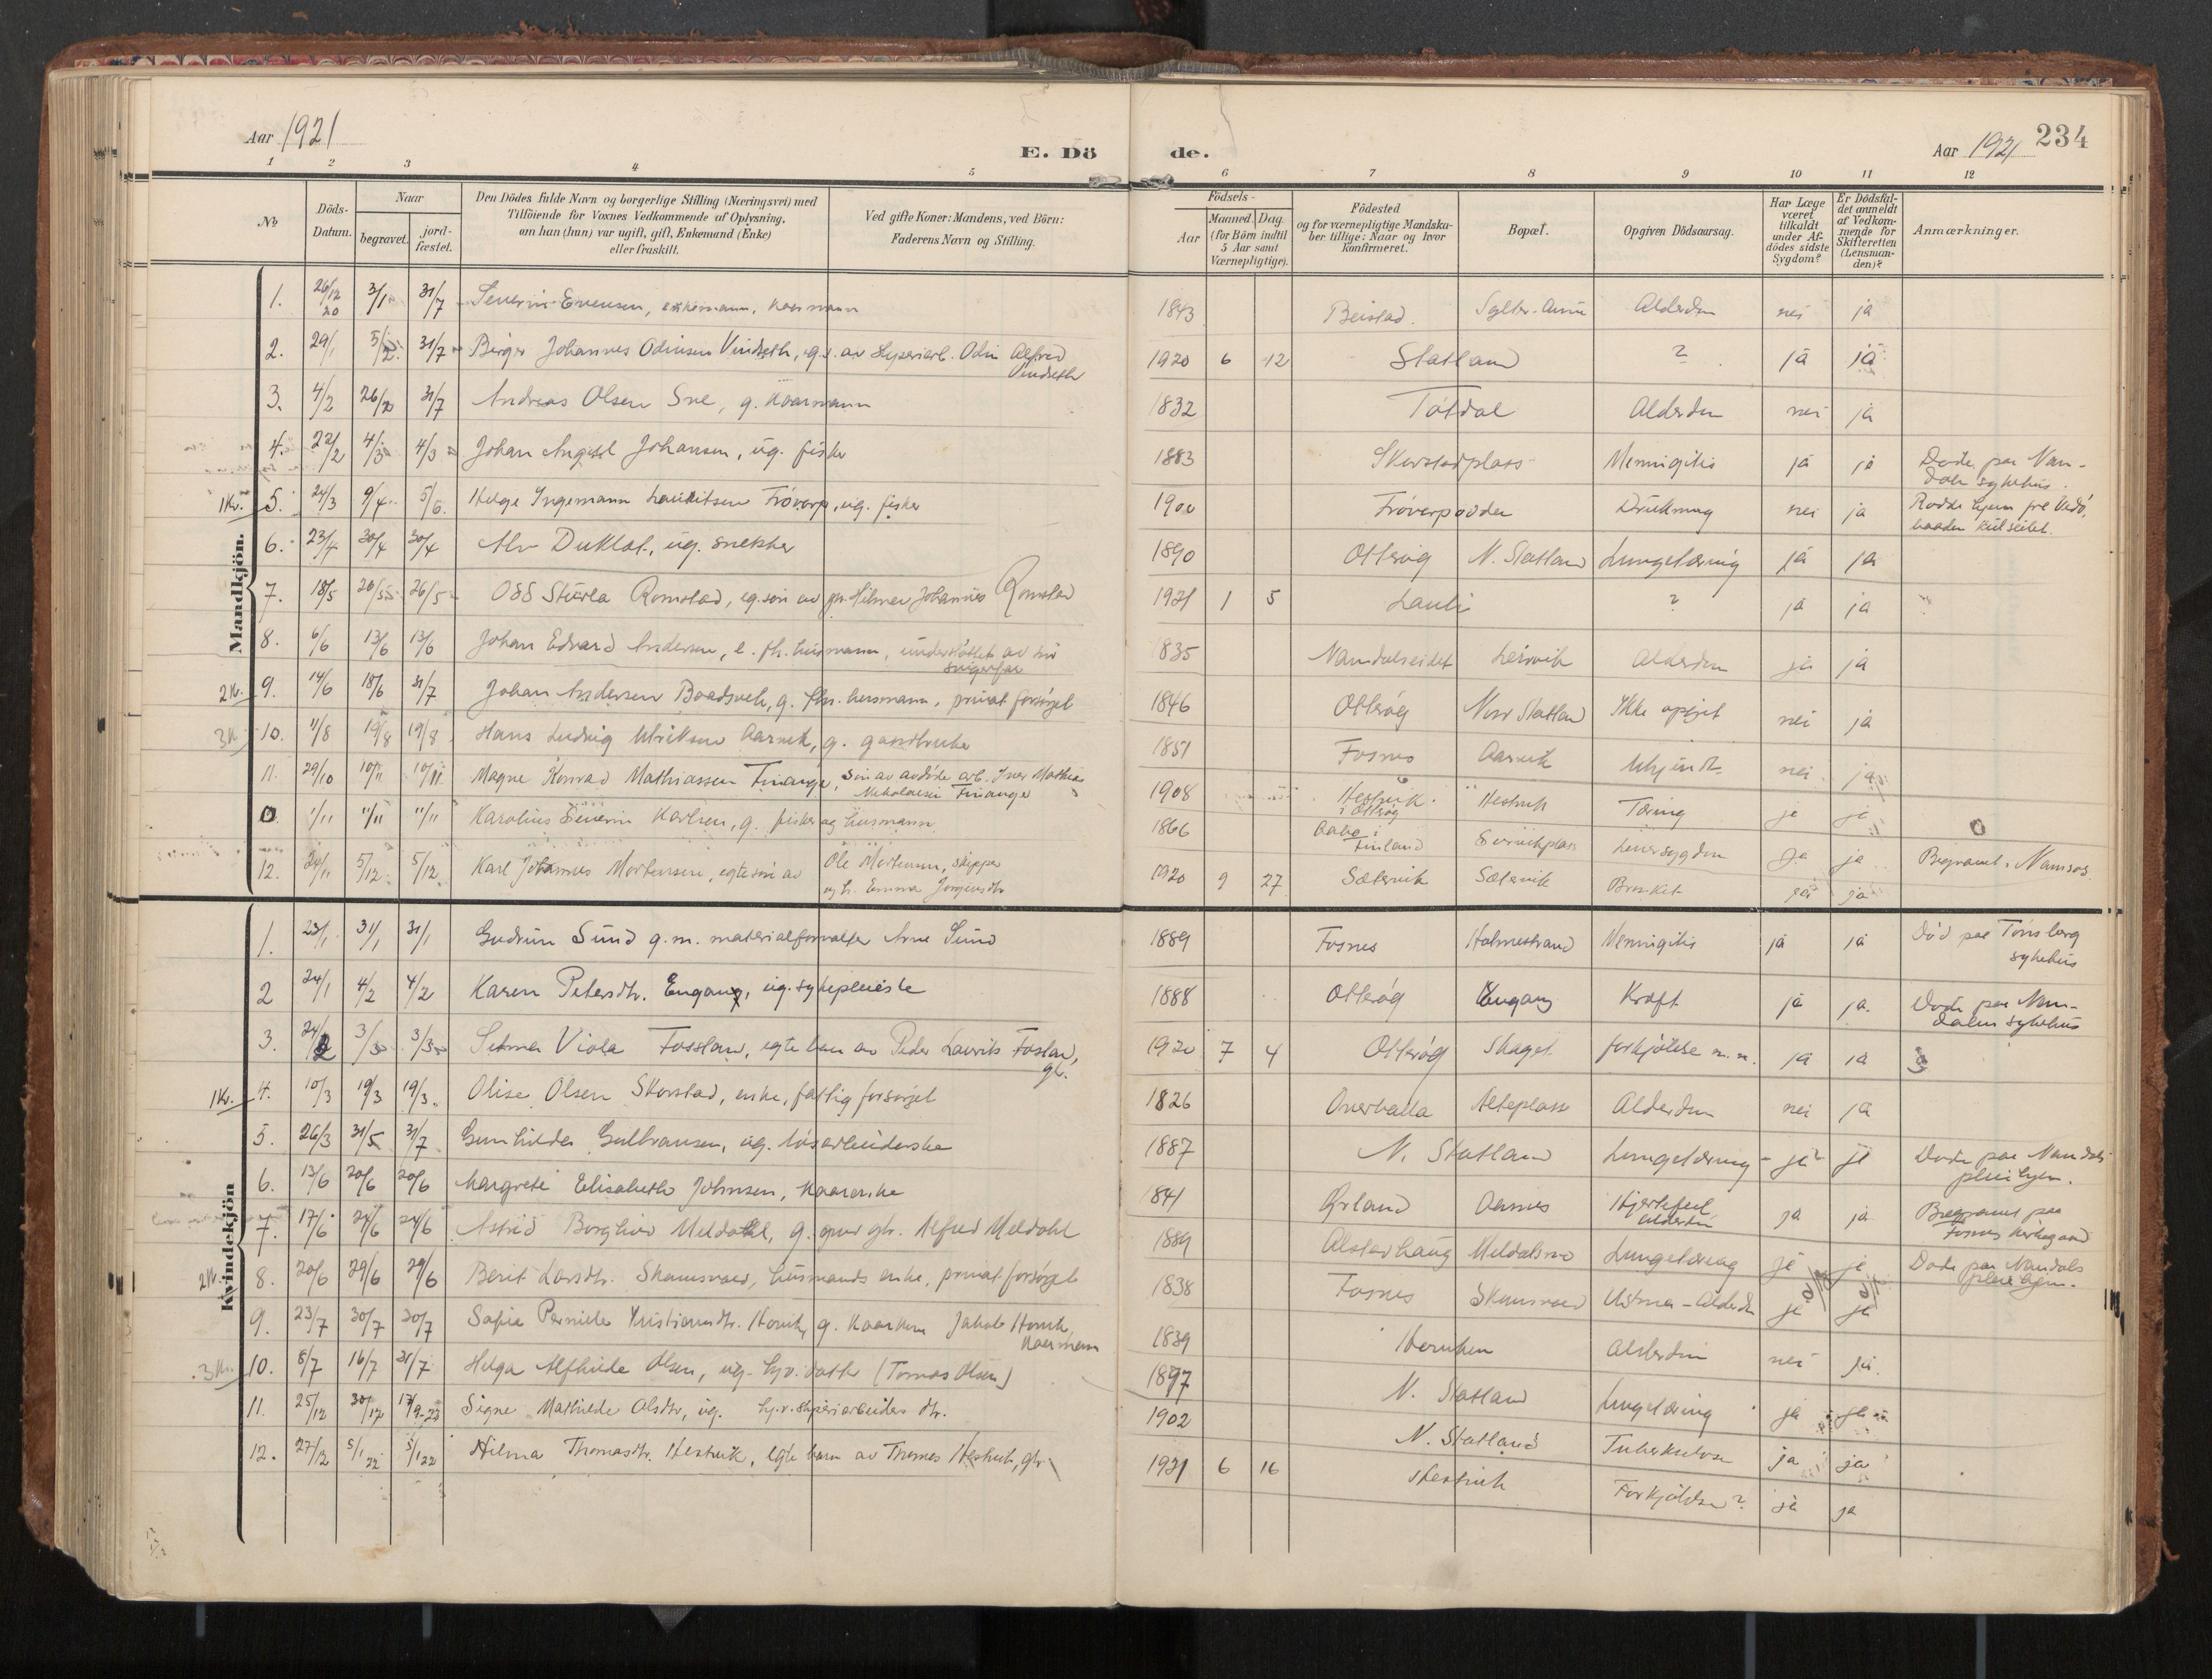 Aar 1921
E. Dö
de.
Aar 1921 234
1 2 3 4 5 6 7 8 9 10 11 12
No
Döds-
Datum.
Naar
begravet.
jord-
fæstet.
Den Dödes fulde Navn og borgerlige Stilling (Næringsvei) med
Tilföiende for Voxnes Vedkommende af Oplysning,
om han (hun) var ugift, gift, Enkemand (Enke)
eller fraskilt.
Ved gifte Koner: Mandens, ved Börn:
Faderens Navn og Stilling.
Födsels-
Aar
Maaned. Dag.
(for Börn indtil
5 Aar samt
Værnepligtige).
Födested
og for værnepligtige Mandska-
ber tillige: Naar og hvor
konfirmeret.
Bopæl.
Opgiven Dödsaarsag.
Har Læge
været
tilkaldt
under Af-
dödes sidste
Sygdom?
Er Dödsfal-
det anmeldt
af Vedkom-
mende for
Skifteretten
(Lensman-
den)?
Anmærkninger.
Mandkjön.
1. 26/12 20 3/1 31/7 Severin Evensen, enkemann, kaarmann 1843 Beistad. Alderdom nei ja
2. 29/1 5/2 31/7 Birger Johannes Odinsen Vindseth, e.g.s. av sliperiarb. Odin Alfred
Vindseth 1920 6 12 Statland ? ja ja
3. 4/2 26/2 31/7 Andreas Olsen Sve, g. kaarmann 1832 Totdal Alderdom nei ja
4. 22/2 4/3 4/3 Johan Angell Johansen, ug. fisker 1883 Skorstadplass Meningitis ja ja Døde paa Nam-
dals sykehus.
1 Kv. 5. 24/3 9/4 5/6. Helge Ingemann Lauritsen Frøverp, ug. fisker 1900 Drukning nei ja Rodde hjem fra Vedø,
baaden kulseilet.
6. 23/4 30/4 30/4 Alv Duklat, ug. snekker 1890 Otterøy N. Statland Lungetæring ja ja
7. 18/5 26/5 26/5 Odd Sturla Romstad, eg. søn av Hilmar Johannes Romstad 1921 1 5 Lauli ? ja ja
8. 6/6 13/6 13/6 Johan Edvard Andersen, e. fh. husmann, understøttet av sin
svigerfar 1835 Namdalseidet Leirvik Alderdom ja ja
2 Kv. 9. 14/6 18/6 31/7 Johan Andersen Baadsvik, g. fhv. husmann, privat forsørget 1846 Otterøy Nor Statland Ikke opgjet nei ja
3 Kv. 10. 11/8 19/8 19/8 Hans Ludvig Ulriksen Aarvik, g. gaardbruker 1851 Fosnes Aarvik Ukjendt nei ja
11. 29/10 10/11 10/11 Magne Konrad Mathiassen Finanger, søn av avdøde arb. Iver Mathias
Nikolaisen Finanger 1908 Hestvik
i Otterøy Hestvik Tæring ja ja
0 1/11 11/11 11/11 Karolius Severin Karlsen, g. fisker og husmann 1866 Aabo i
Finland Leversygdom ja ja Begravet i Namsos
12. 24/11 5/12 5/12 Karl Johannes Mortensen, egte søn av Ole Mortensen, skipper
og h. Emma Jørgensdtr. 1920 9 27 Sætervik Sætervik Bronkit ja ja
Kvindekjön
1. 23/1 31/1 31/1 Gudrun Sund g.m. materialforvalter Arne Sund 1889 Fosnes Holmestrand Meningitis ja ja Død paa Tønsberg
sykehus
2 24/1 4/2 4/2 Karen Petersdtr. Engang, ug. sykepleiske 1888 Otterøy Engang Kræft ja ja. Døde paa Nam-
dalens sykehus
3. 24/2 3/3 3/3 Selma Viola Fossland, egte barn av Peder Laurits Fosland,
gb. 1920 7 4 Otterøy Skaget forkjølelse m.m. ja ja
1 Kv. 4. 10/3 19/3 19/3. Olise Olsen Skorstad, enke, fattig forsørget 1826 Overhalla Alteplass Alderdom nei ja
5. 26/3 31/5 31/7 Gunhilda Gulbransen, ug. løsarbeiderske 1887 N. Statland Lungetæring ja ja Døde paa Namdals
pleiehjem.
6. 13/6 20/6 20/6 Margrete Elisabeth Johnsen, kaarenke 1841 Ørland Aarnes Hjertefeil
alderdom ja ja Begravet paa
Fosnes kirkegaard
7. 17/6 24/6 24/6 Astrid Borghild Meldahl, g. Alfred Meldahl 1889 Alstahaug Meldalsmo Lungetæring ja ja Døde paa Namdals
pleiehjem.
2 Kv. 8. 20/6 29/6 29/6 Berit Larsdtr. Skamsvaed, husmands enke, privat forsørget 1838 Fosnes Skamsvaed Astma - Alderdom ja ja
9. 23/7 30/7 30/7 Sofie Pernille Kristiansdtr. Hornk, g. kaarkone Jakob Hornk
kaarmann 1839 Alderdom nei ja.
3 Kv. 10. 8/7 16/7 31/7 Helga Alfhilde Olsen, ug. hjv. datter (Tomas Olsen) 1897 N. Statland Lungetæring ja ja
11. 25/12 30/12 17/9-22 Signe Mathilde Olsdtr, ug. hj.v. sliperiarbeiders dtr. 1902 N. Statland Tuberkulose ja ja
12. 27/12 5/1 22 5/1 22 Hilma Thomasdtr. Hestvik, egte barn av Thomas Hestvik, gbr. 1921 6 16 Hestvik Forkjølelse? ja ja